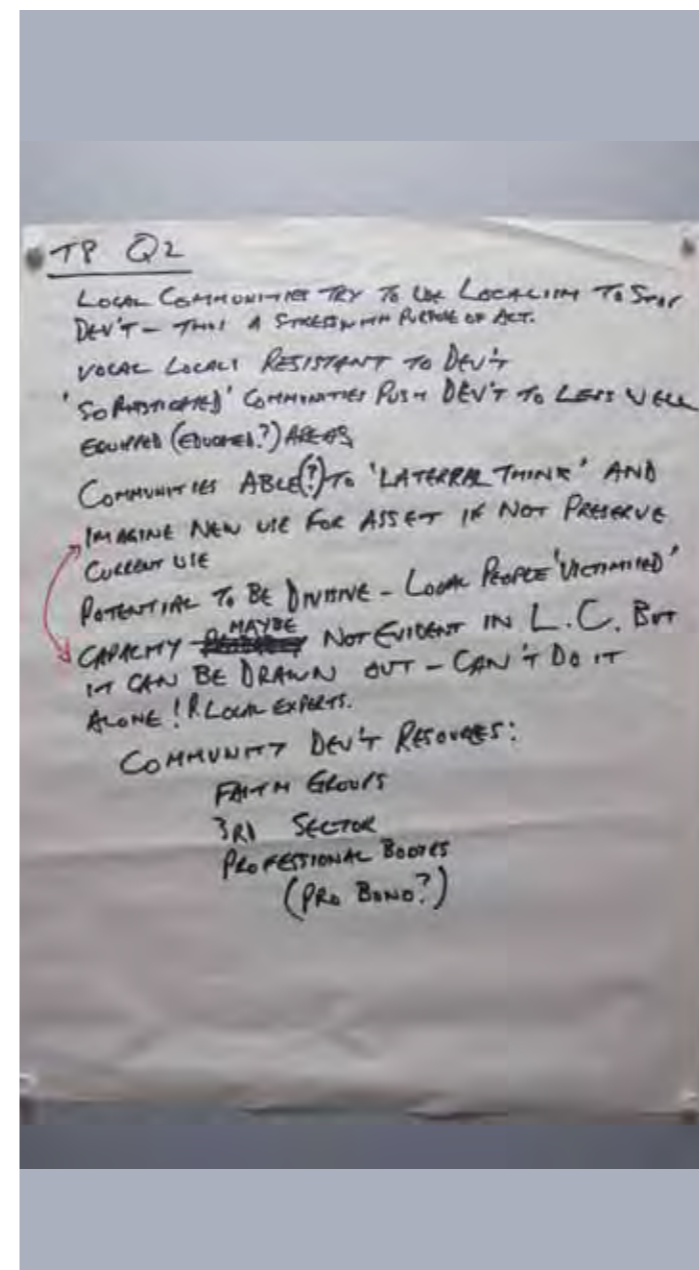 TP Q2
LOCAL COMMUNITIES TRY TO USE LOCALISM TO STOP
DEV'T – THUS A STRESS WITH PURPOSE OF ACT.
VOCAL LOCALS RESISTANT TO DEV'T
'SOPHISTICATED' COMMUNITIES PUSH DEV'T TO LESS WELL
EQUIPPED (EDUCATED?) AREAS
COMMUNITIES ABLE(?) TO 'LATERRAL THINK' AND
IMAGINE NEW USE FOR ASSET IF NOT PRESERVE
CURRENT USE
POTENTIAL TO BE DIVISIVE – LOCAL PEOPLE 'VICTIMISED'
CAPACITY MAYBE NOT EVIDENT IN L.C. BUT
IT CAN BE DRAWN OUT – CAN'T DO IT
ALONE! LOCAL EXPERTS.
COMMUNITY DEV'T RESOURCES:
FAITH GROUPS
3RD SECTOR
PROFESSIONAL BODIES
(PRO BONO?)